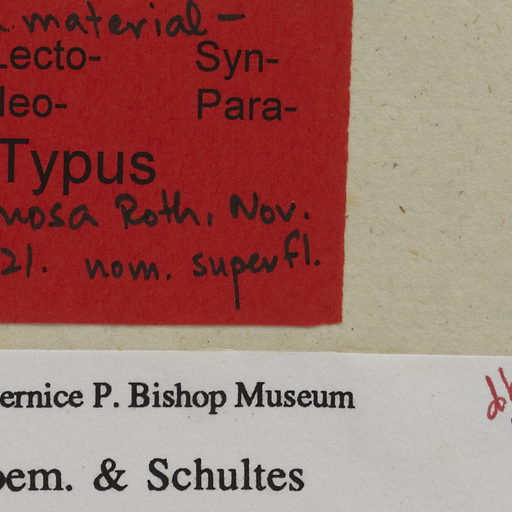 material-
Lecto- Syn-
Neo- Para-
Typus
mosa Roth, Nov.
21. nom. superfl.
ernice P. Bishop Museum
oem. & Schultes